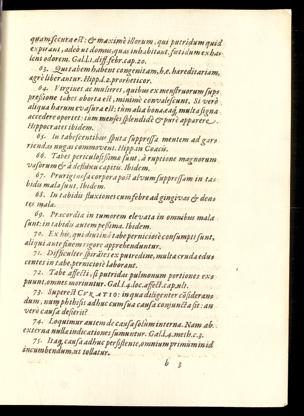 quam secura est: & maximè istorum, qui putridum quid
expirant, adeò ut domus, quas inhabitant, foetidum ex ha-
lens odorem. Gal.l.1. diff. febr. cap. 20.
63. Qui tabem habent congenitam, h.e. hereditariam,
ægrè liberantur. Hipp. l.2. prorheticor.
64. Virgines ac mulieres, quibus ex menstruorum sup-
pressione tabes oborta est, minimè convalescunt. Si verò
aliqua harum evasura est: tùm alia bona, eaq; multa signa
accedere oportet: tùm menses splendidè & purè apparere.
Hippocrates ibidem.
65. In tabescentibus sputa suppressa mentem ad gar-
riendas nugas commovent. Hipp. in Coacis.
66. Tabes periculosissimæ sunt, à ruptione magnorum
vasorum & à destillatu capitis. Ibidem.
67. Pruriginosa corpora post alvum suppressam in ta-
bidis mala sunt. Ibidem.
68. In tabidis fluxiones cum febre ad gingivas & den-
tes mala.
69. Præcordia in tumorem elevata in omnibus mala
sunt: in tabidis autem pessima. Ibidem.
70. Ex his, qui diutinâ tabe perniciosè consumpti sunt,
aliqui ante finem rigore apprehenduntur.
71. Difficulter spirâtes ex putredine, multa cruda edu-
centes in tabe, perniciosè laborant.
72. Tabe affecti, si putridas pulmonum portiones ex-
puunt, omnes moriuntur. Gal.l.4. loc. affect. cap. ult.
73. Superest CURATIO: in qua diligenter cõsideran-
dum, num phthisi adhuc cum sua causa conjuncta sit: an
verò causa desierit?
74. Loquimur autem de causa solùm interna. Nam ab
externa nulla indicationes sumuntur. Gal.l.4. meth. c.3.
75. Itaq; causa adhuc persistente, omnium primùm in id
incumbendum, ut tollatur.
b 3